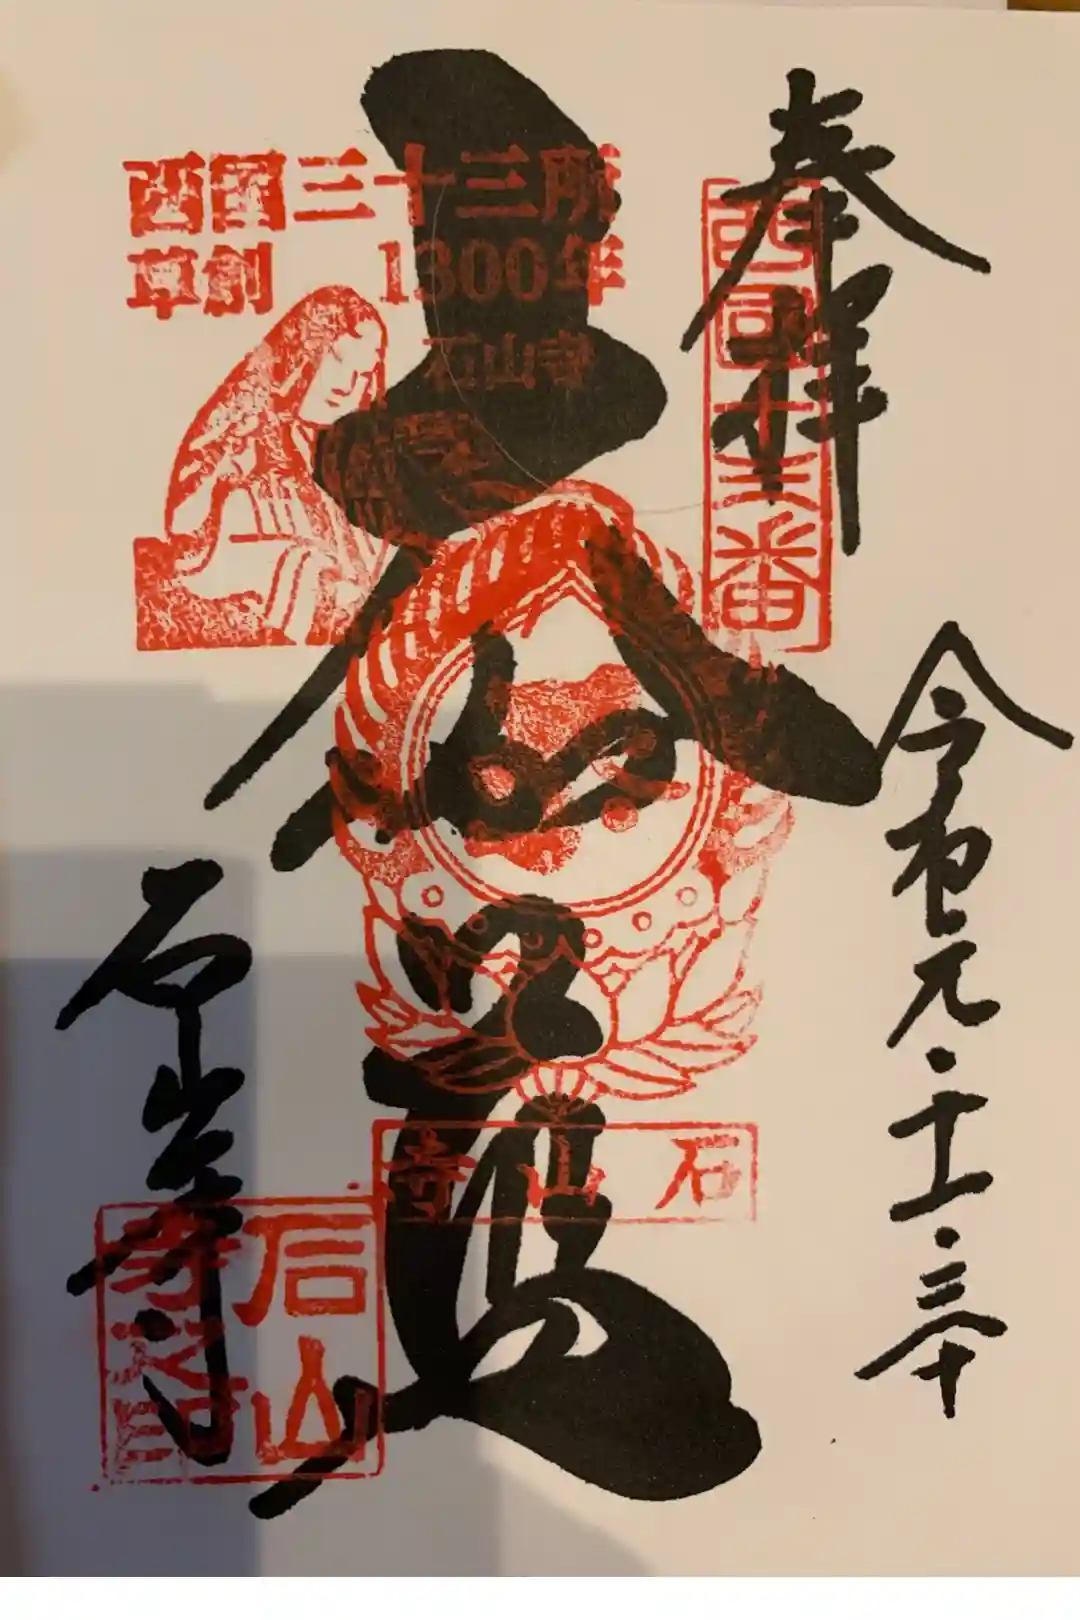 奉拝
西国十三番
令和元・十一・三十
西國三十三所
草創 1300年
石山寺
石山寺
石山寺
石山
寺之印